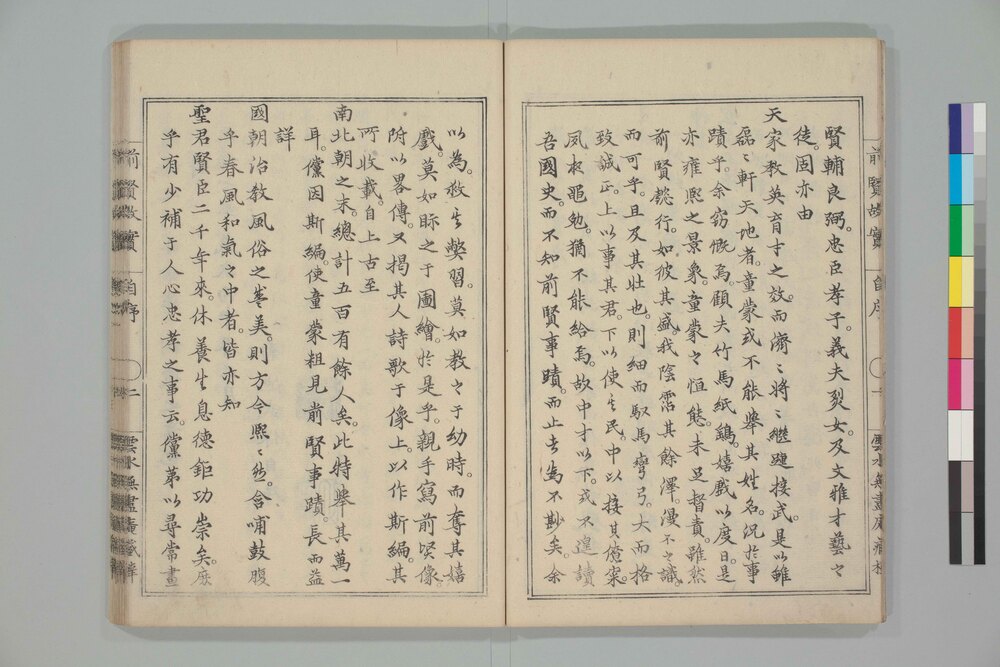 賢輔良弼。忠臣孝子。義夫烈女。及文雅才藝之
徒。固亦由
天家教英育才之效。而濟々將々。繼踵接武。是以雖
磊々軒天地者。童蒙或不能舉其姓名。況於事
蹟乎。余窃慨焉。顧夫竹馬紙鷂。嬉戲以度日。是
亦雍熙之景象。童蒙之恒態。未足督責。雖然
前賢懿行。如彼其盛。我陰霑其餘澤。漫不之識。
而可乎。且及其壯也。則細而馭馬彎弓。大而格
致誠正。上以事其君。下以使其民。中以接其僚寀。
夙夜黽勉。猶不能給焉。故中才以下。或不遑讀
吾國史。而不知前賢事蹟。而止者為不尠矣。余
以為。救其弊習。莫如教之于幼時。而奪其嬉
戲。莫如眎之于圖繪。於是乎。親手寫前賢像。
附以畧傳。又掲其人詩歌于像上。以作斯編。其
所收載。自上古至
南北朝之末。總計五百有餘人矣。此特舉其萬一
耳。儻因斯編。使童蒙粗見前賢事蹟。長而益
詳
國朝治教風俗之美。則方今熙々然。含哺鼓腹
乎春風和氣之中者。皆亦知
聖君賢臣二千年來。休養生息德鉅功崇矣。庶
乎有少補于人心忠孝之事云。儻第以尋常畫
前賢故實
自序
一
雲水無盡庵藏梓
前賢故實
自序
二
雲水無盡庵藏梓